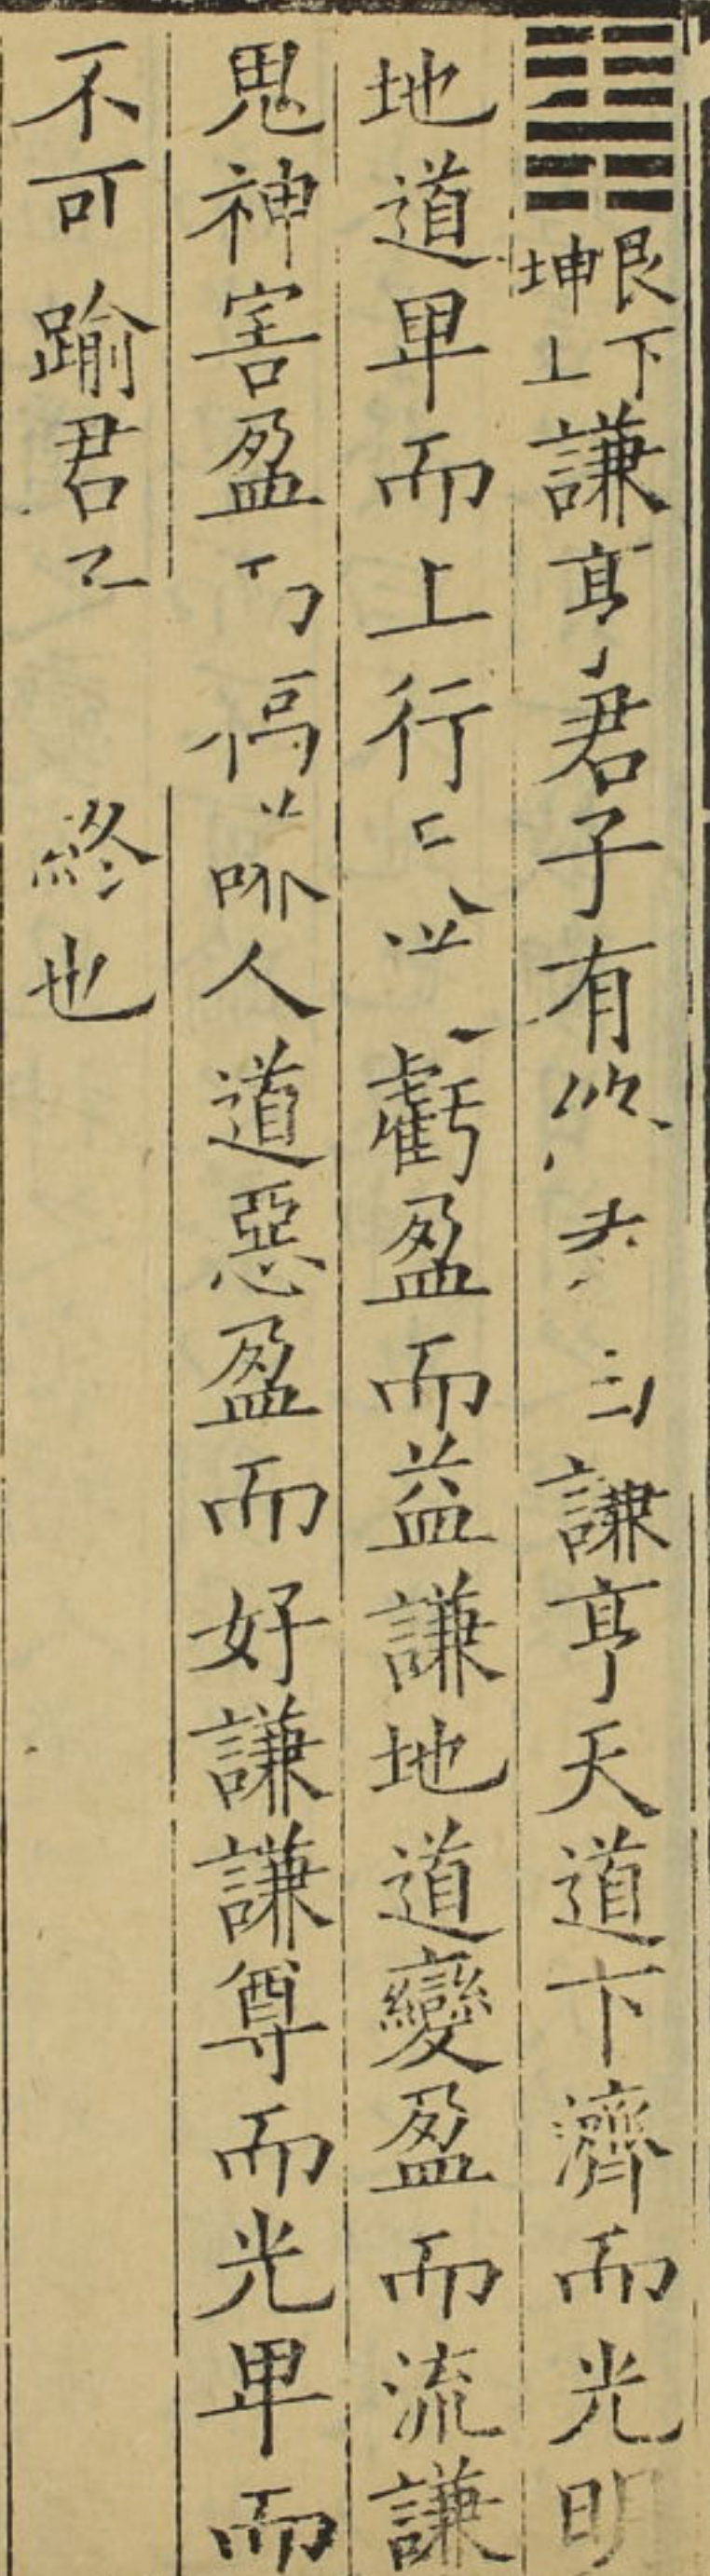 ䷎艮下坤上謙亨君子有謙亨天道下濟而光明
地道卑而上行虧盈而益謙地道變盈而流謙
鬼神害盈人道惡盈而好謙謙尊而光卑而
不可踰君終也